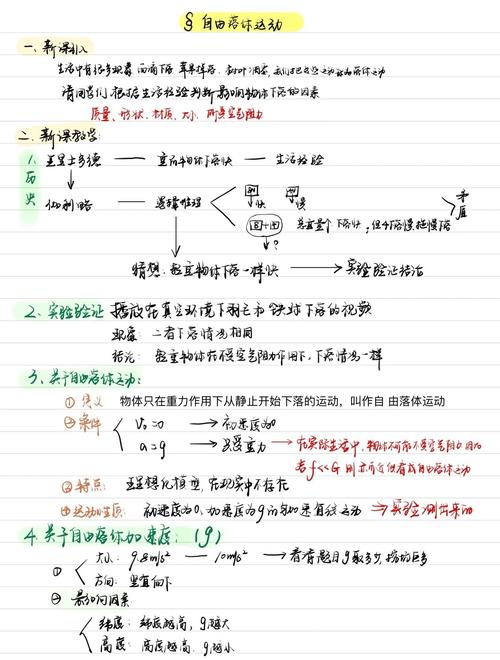 § 自由落体运动
一、新课引入
生活中有很多现象 雨滴下落 苹果掉落、树叶凋零、我们把这些运动认为落体运动
请同学们 根据生活经验判断影响物体下落的因素
质量、形状、材质、大小、所受空气阻力
二、新课教学:
1.历史
亚里士多德 —— 重的物体下落快 —— 生活经验
伽利略 —— 逻辑推理
快 慢
总重量个下落快,但下落慢拖慢下落
矛盾
?
猜想:轻重物体下落一样快 → 实验验证结论
2、实验验证 播放在真空环境下羽毛和铁球下落的视频
现象:二者下落情况相同
结论:轻重物体在不受空气阻力作用下,下落情况一样
3、关于自由落体运动:
① 定义 物体只在重力作用下从静止开始下落的运动,叫作自 由落体运动
② 条件
V₀=0 → 初速度为0
a=g → 只受重力 → 在实际生活中,物体不可能不受空气阻力 因而
若 f<<G 则 亦可近似看成自由落体运动
③ 特点: 理想化模型,在现实中不存在
④ 运动性质: 初速度为0,加速度为g的匀加速直线运动 → 实验测出来的
4.关于自由落体加速度:(g)
①
大小:9.8m/s² — 10m/s² → 看看题目g取多少
方向:竖直向下
② 影响因素:
纬度:纬度越高,g越大
高度:高度越高,g越小